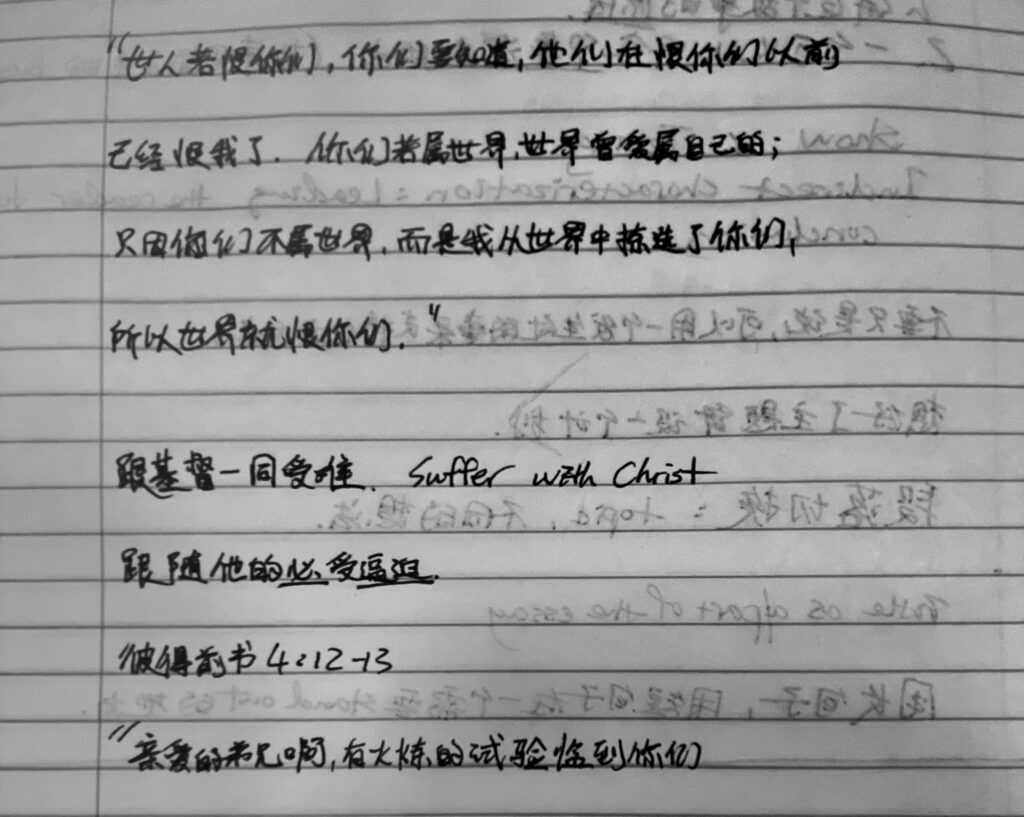 “世人若恨你们，你们要知道，他们在恨你们以前
已经恨我了．你们若属世界，世界曾爱属自己的；
只因你们不属世界，而是我从世界中拣选了你们，
所以世界就恨你们．”
跟基督一同受难． Suffer with Christ
跟随他的必受逼迫．
彼得前书 4:12-13
“亲爱的弟兄啊，有火炼的试验临到你们